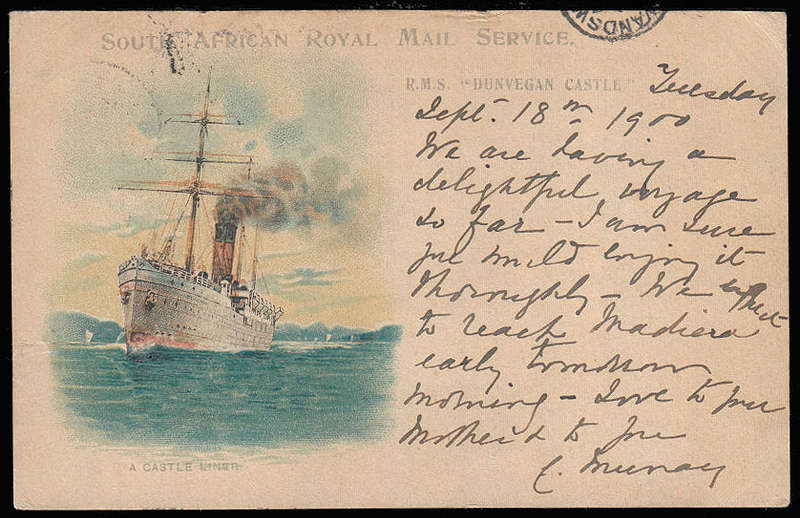 WANDSW
SOUTH AFRICAN ROYAL MAIL SERVICE.
R.M.S. "DUNVEGAN CASTLE"
Tuesday
Sept. 18th 1900
We are having a
delightful voyage
so far - I am sure
you would enjoy it
thoroughly - We expect
to reach Madiera
early tomorrow
morning - Love to your
Mother & to you
C. Murray
A CASTLE LINER